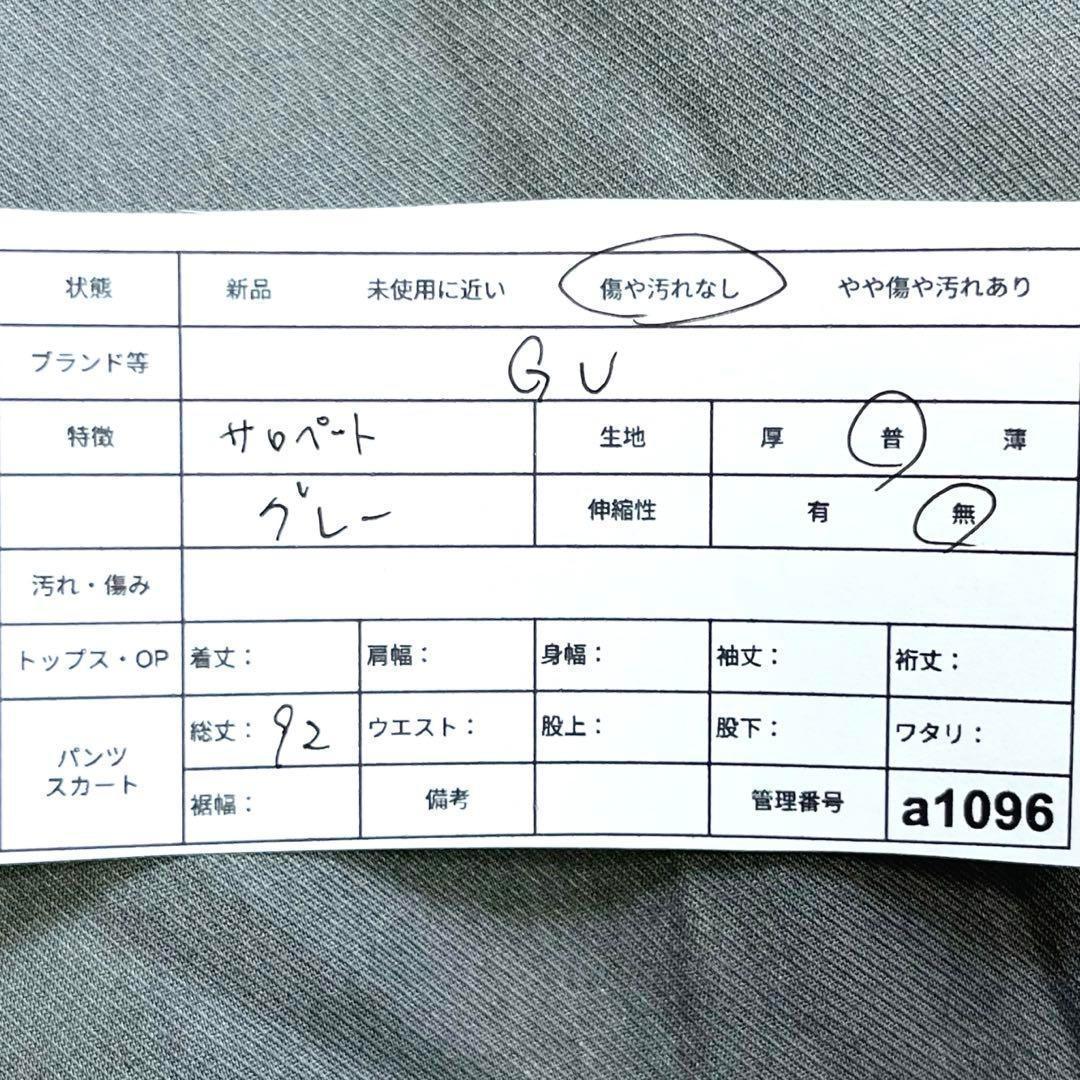 状態 新品 未使用に近い 傷や汚れなし やや傷や汚れあり
ブランド等 GU
特徴 サロペート 生地 厚 普 薄
グレー 伸縮性 有 無
汚れ・傷み
トップス・OP 着丈： 肩幅： 身幅： 袖丈： 裄丈：
パンツ スカート 総丈：92 ウエスト： 股上： 股下： ワタリ：
裾幅： 備考 管理番号 a1096